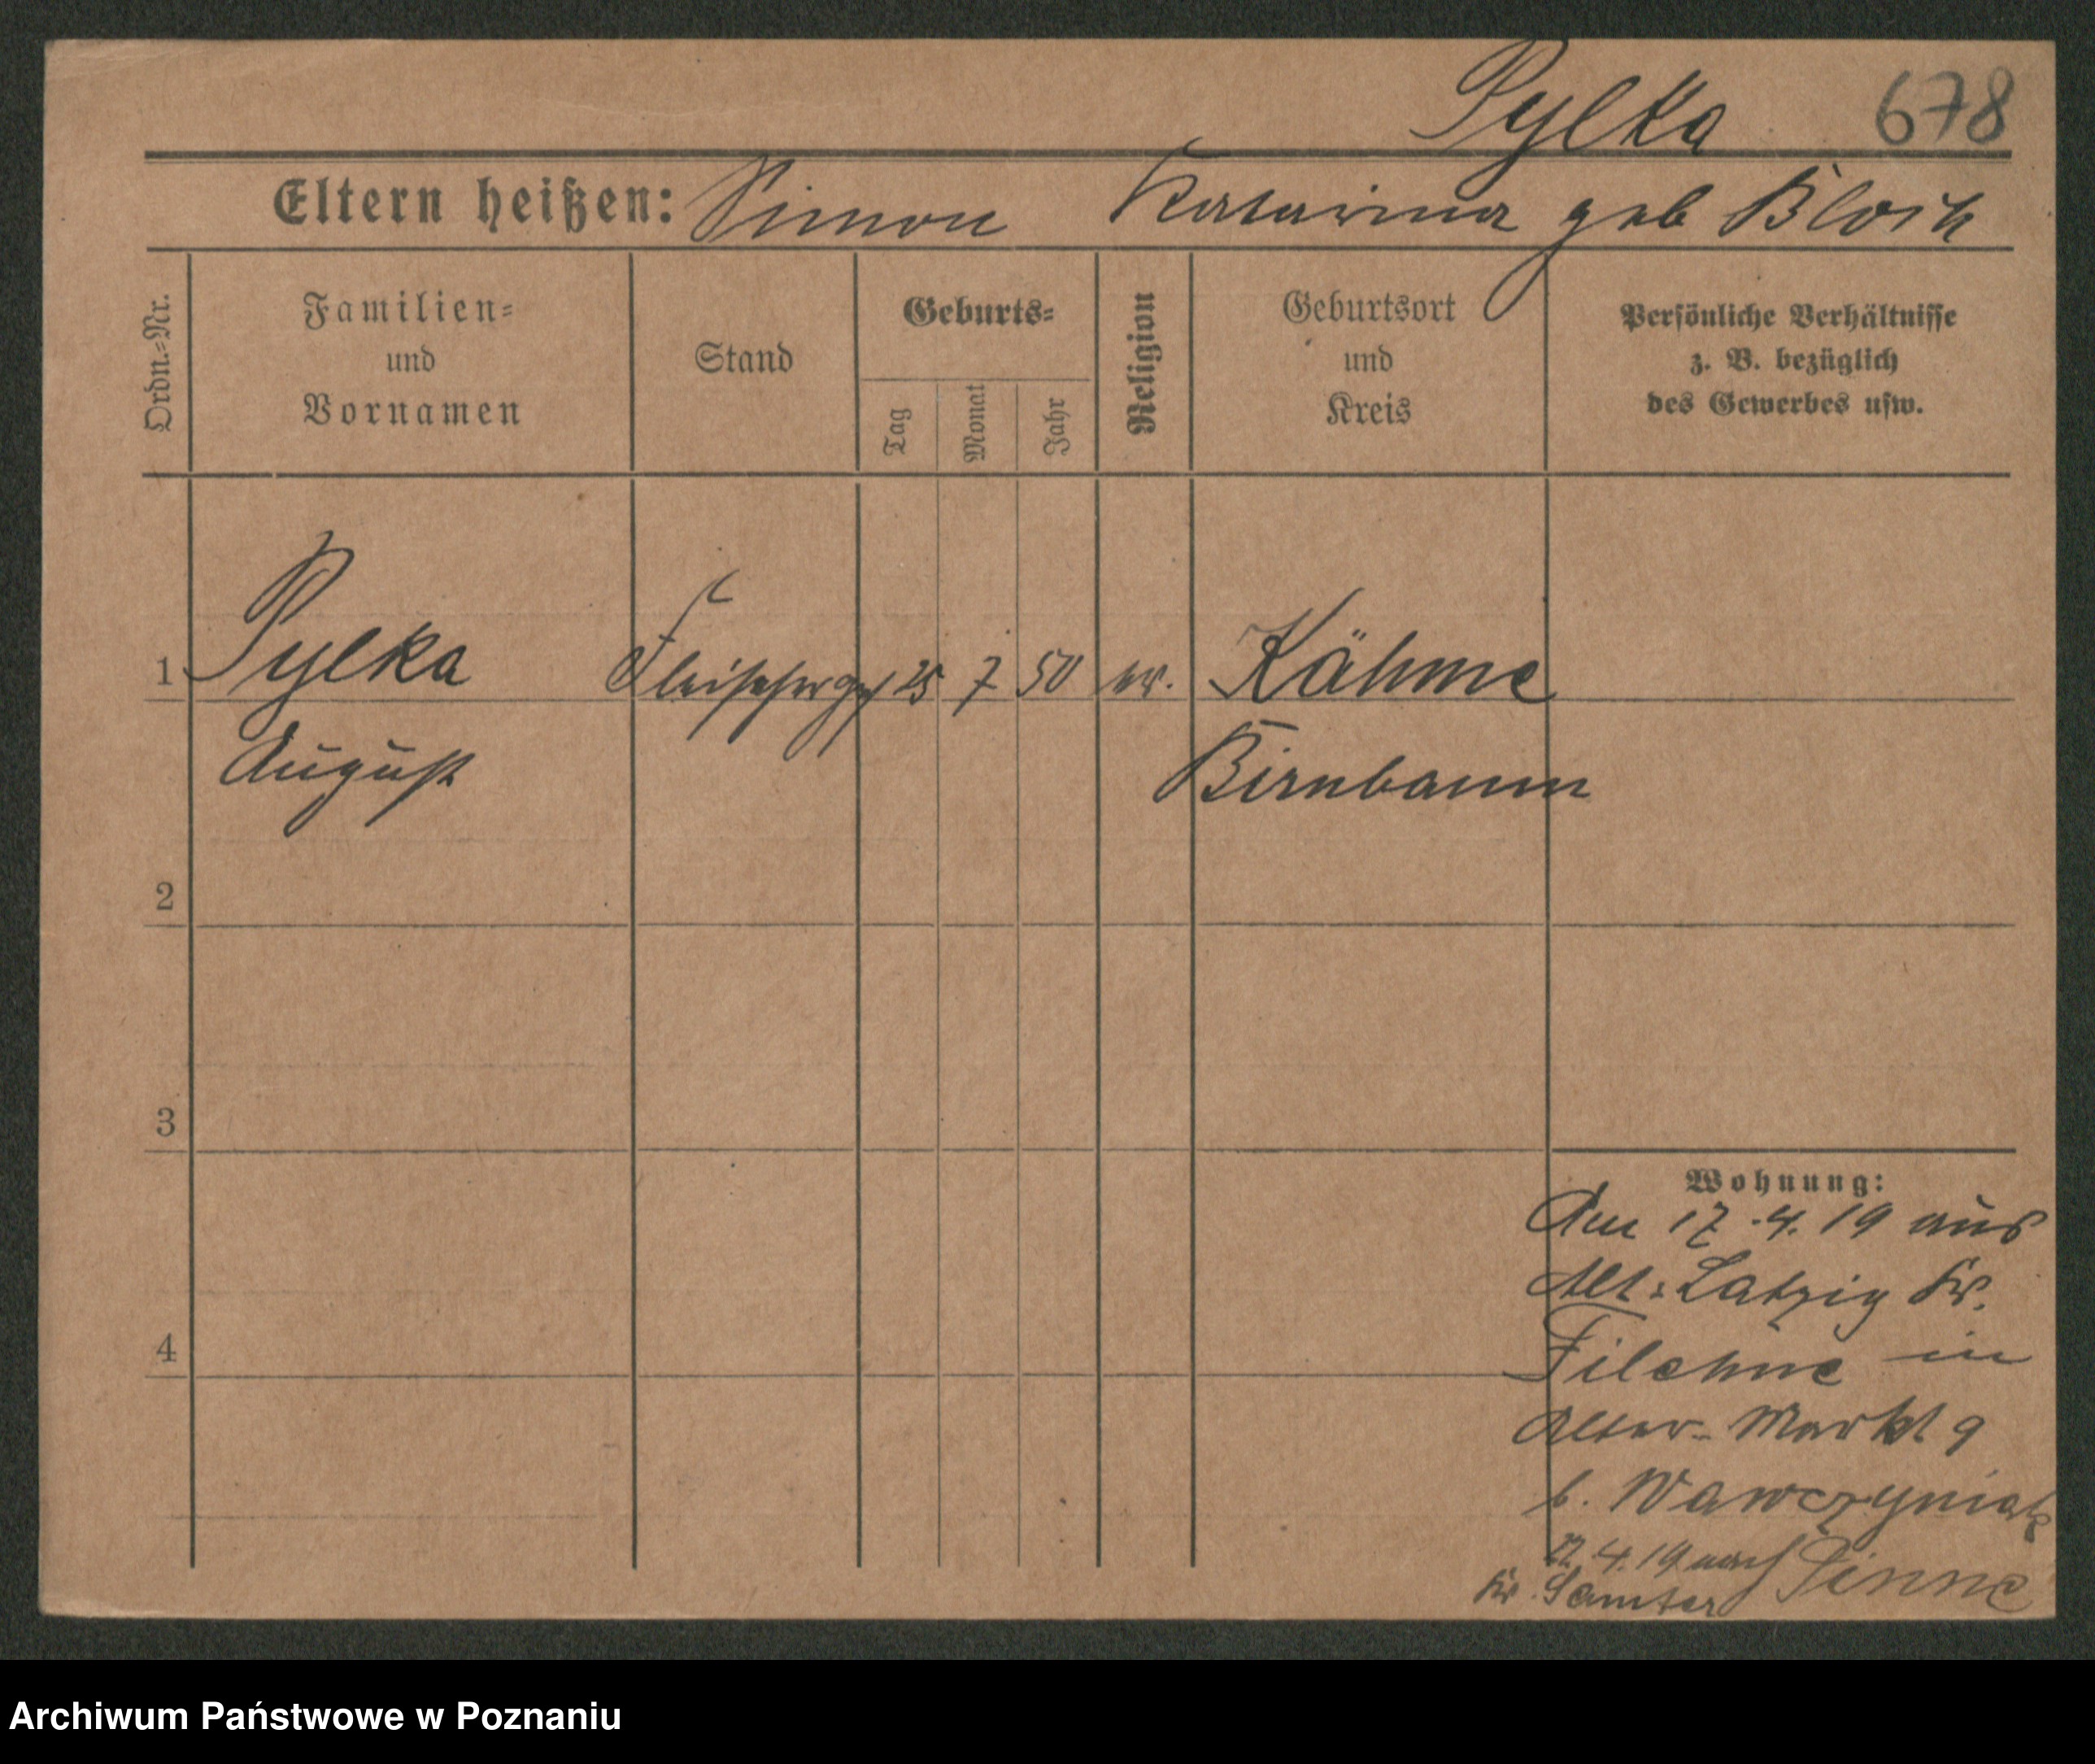 Pylka 678
Eltern heißen: Simon Katarina geb Bloch
Ordn.=Nr.
Familien=
und
Vornamen
Stand
Geburts=
Tag
Monat
Jahr
Religion
Geburtsort
und
Kreis
Persönliche Verhältnisse
z. B. bezüglich
des Gewerbes usw.
1 Pylka Fleischerges 25 7 50 ev. Kähme
August Birnbaum
2
3
4
Wohnung:
Am 17.4.19 aus
Alt=Latzig Kr.
Filehne in
Alter-Markt 9
b. Wawrzyniak
22.4.19 nach Pinne
Kr. Samter
Archiwum Państwowe w Poznaniu